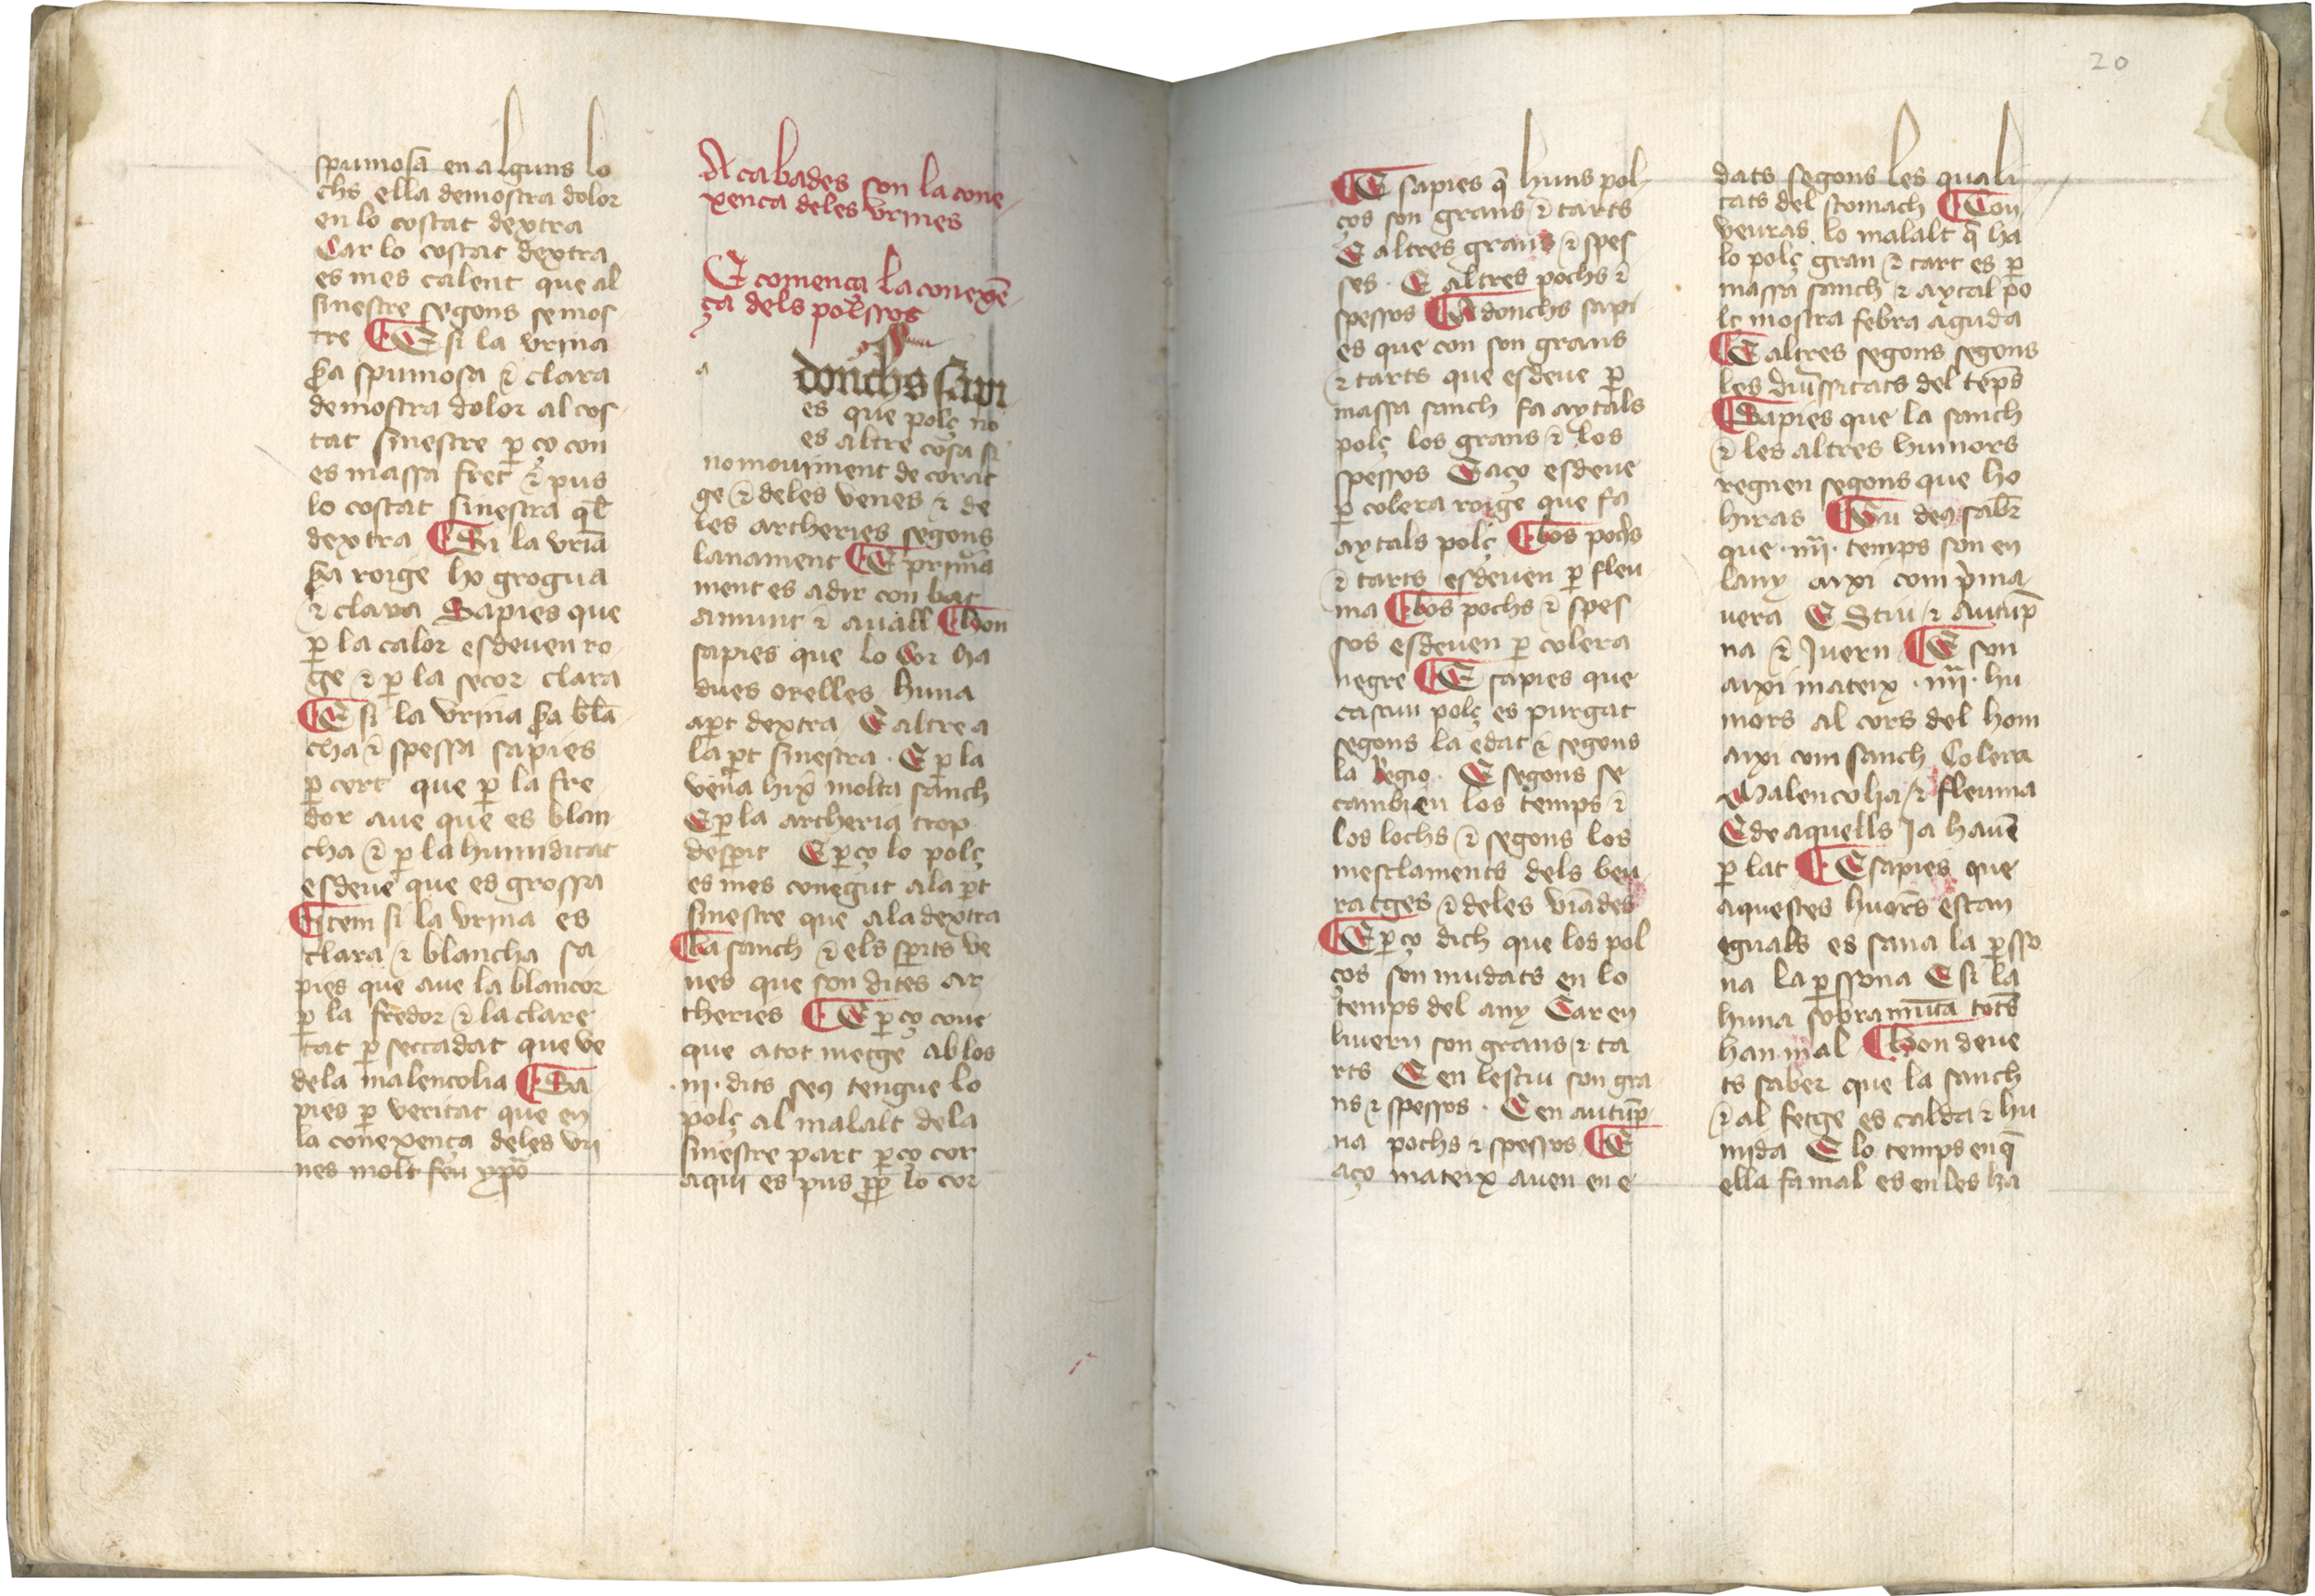 spumosa en alguns lo
chs ella demostra dolor
en lo costat dextra
Car lo costat dextra
es mes calent que al
sinestre segons se mos
tre E si la vrina
sꝑa spumosa ⁊ clara
demostra dolor al cos
tat sinestre ꝑ ço con
es massa fret ⁊ pus
lo costat sinestra q̄l
dextra Si la vrīa
sꝑa roige ho grogua
⁊ clara Sapies que
ꝑ la calor esdeuen ro
ge ⁊ ꝑ la secor clara
E si la vrina sꝑa blā
cha ⁊ spessa sapies
ꝑ cert que ꝑ la fre
dor aue que es blan
cha ⁊ ꝑ la humiditat
esdeue que es grossa
Item si la vrina es
clara ⁊ blancha sa
pies que aue la blancor
ꝑ la fredor ⁊ la clare
tat ꝑ seccadat que ve
dela malencolia Sa
pies ꝑ veritat que en
la conexença deles vri
nes molt feu ypo
Acabades son la cone
xenca deles vrines
E comenca la conexē
ça dels polssos
a
donchs sapi
es que polç no
es altre cosa si
no mouiment de corat
ge ⁊ deles venes ⁊ de
les artheries segons
lanament E prima
ment es adir con bat
amunt ⁊ auall Hon
sapies que lo cor ha
dues orelles huna
aꝑt dextra E altre a
la ꝑt sinestra · E ꝑ la
vena hix molta sanch
E ꝑ la artheria trop
desperit E ꝑ ço lo polç
es mes conegut ala ꝑt
sinestre que ala dextra
La sanch ⁊ els spirits ve
nes que son dites ar
theries E ꝑ ço coue
que atot metge ab los
·iii· dits seus tengue lo
polç al malalt dela
sinestre part ꝑ ço cor
aqui es pus ꝓp lo cor
20
E sapies q̄ huns pol
ços son grans ⁊ tarts
E altres grans ⁊ spes
ses · E altres pochs ⁊
spessos Adonchs sapi
es que con son grans
⁊ tarts que esdeue ꝑ
massa sanch fa aytals
polç los grans ⁊ los
spessos E aço esdeue
ꝑ colera roige que fa
aytals polç Los pochs
⁊ tarts esdeuen ꝑ fleu
ma Los pochs ⁊ spes
sos esdeuen ꝑ colera
negre E sapies que
cascun polç es purgat
segons la edat ⁊ segons
la Regio · E segons se
cambien los temps ⁊
los lochs ⁊ segons los
mesclaments dels beu
ratges ⁊ deles viādes
E ꝑ ço dich que los pol
ços son mudats en lo
temps del any Car en
hiuern son grans ⁊ ta
rts E en lestiu son gra
ns ⁊ spessos · E en autūp
na pochs ⁊ spessos E
aço mateix auen en e
dats segons les quali
tats del stomach Con
veuras lo malalt q̄ ha
lo polç gran ⁊ tart es ꝑ
massa sanch ⁊ aytal po
lc mostra febra aguda
E altres segons segons
les diuꝰssitats del tēps
Sapies que la sanch
⁊ les altres humors
regnen segons que ho
hiras Tu deus saber
que ·iiii· temps son en
lany aixi com prima
uera E Stiu ⁊ Autūp
na ⁊ Juern E son
aixi mateix ·iiii· hu
mors al cors del hom
aixi com sanch Colera
Malencolia ⁊ fleuma
E de aquells Ja hauē
ꝑ lat E sapies que
aquestes huors estan
eguals es sana la ꝑsso
na la ꝑssona E si la
huna sobramūta tots
han mal Hon deue
ts saber que la sanch
⁊ al fetge es calda ⁊ hu
mida E lo temps en q̄
ella fa mal es en les ha